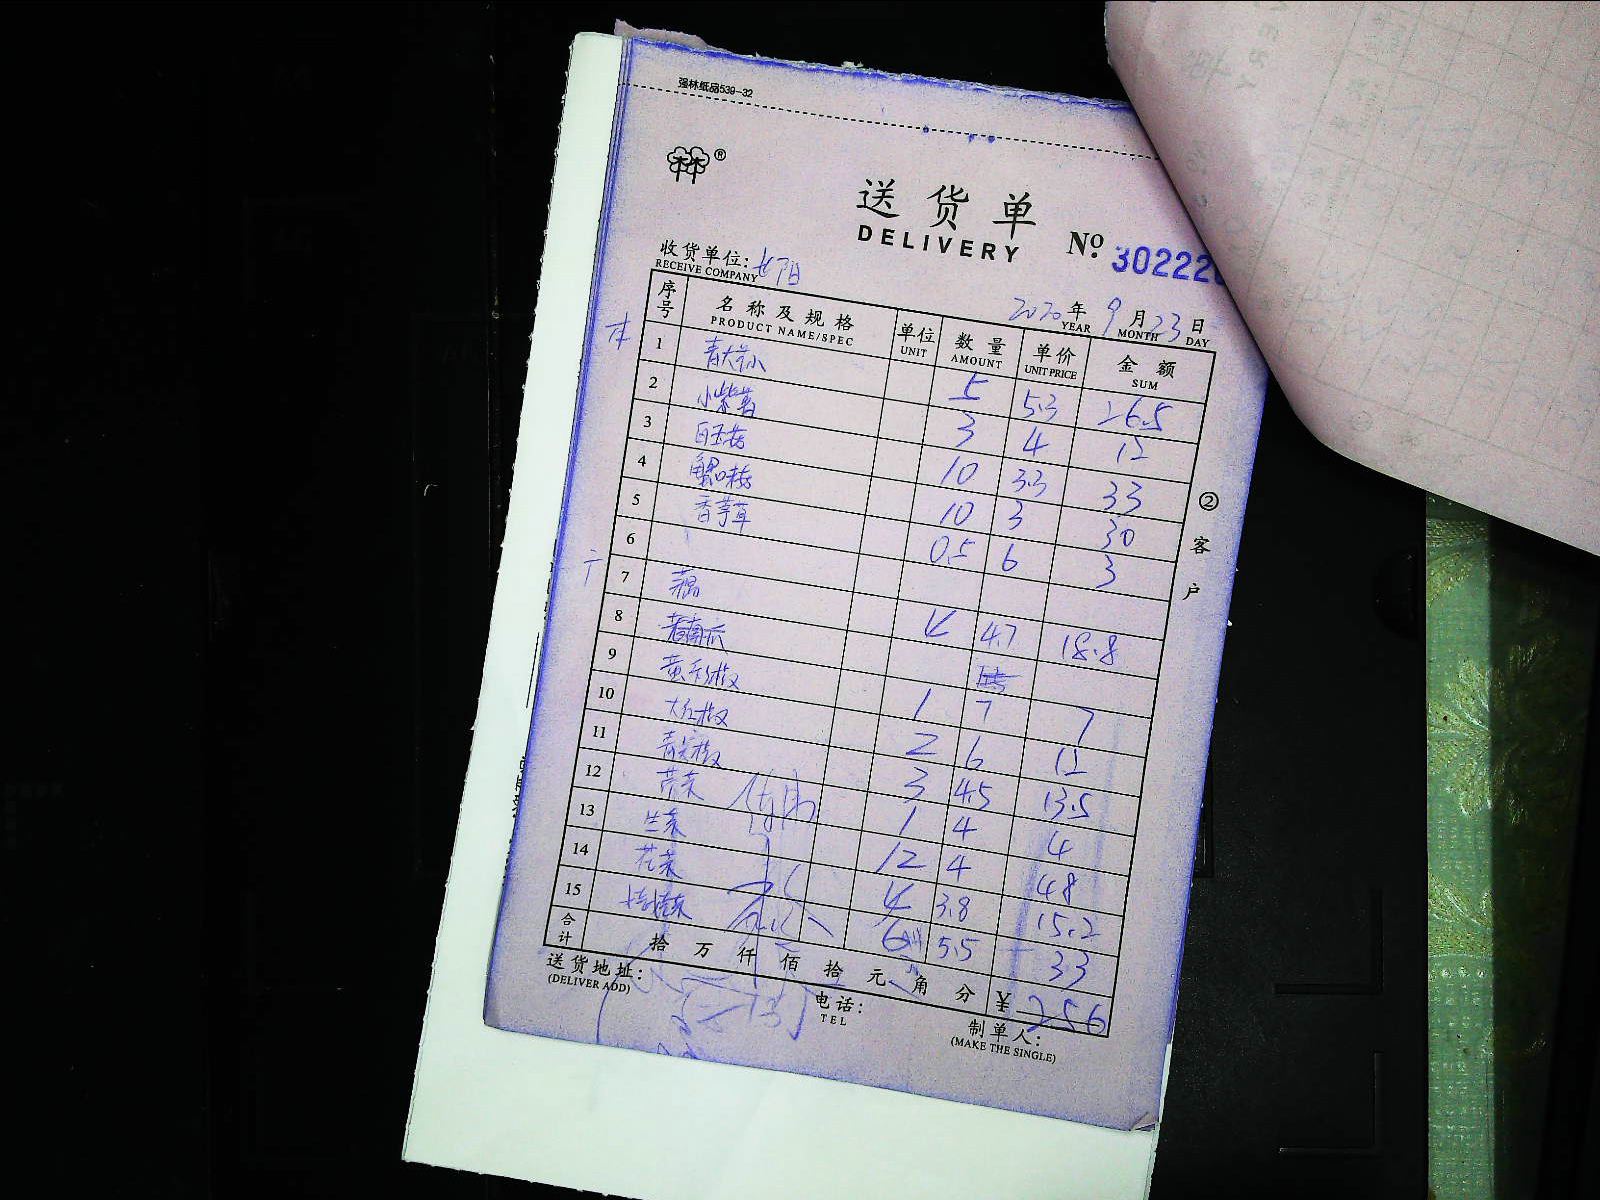 强林纸品539-32
送货单
DELIVERY № 30222
收货单位: 长阳
RECEIVE COMPANY
2020年9月23日
YEAR MONTH DAY
序号 名称及规格 单位 数量 单价 金额
PRODUCT NAME/SPEC UNIT AMOUNT UNIT PRICE SUM
本
1 5 5.3 26.5
2 小紫薯 3 4 12
3 白玉菇 10 3.3 33
4 蟹味菇 10 3 30
5 香芋草 0.5 6 3
6
7 藕 4 4.7 18.8
8 老南瓜
9 黄彩椒 1 7 7
10 大红椒 2 6 12
11 青尖椒 3 4.5 13.5
12 1 4 4
13 生菜 12 4 48
14 花菜 4 3.8 15.2
15 6 5.5 33
合计 拾万仟佰拾元角分 ¥256
②客户
送货地址:
(DELIVER ADD)
电话:
TEL
制单人:
(MAKE THE SINGLE)